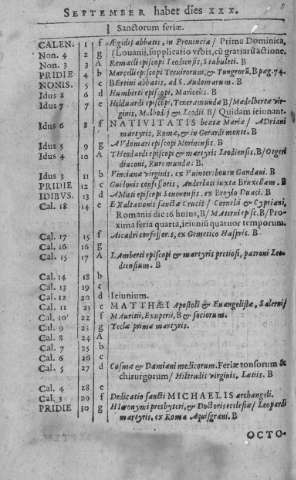 SEPTEMBER habet dies XXX.
Sanctorum feriæ.
CALEN. 1 f Ægidij abbatis, in Provincia / Prima Dominica,
Non. 4 2 g Lovanij, supplicatio vrbis, cũ gratiarũ actione.
Non. 3 3 A Remacli episcopi Leodensis, Stabuleti. B
PRIDIE 4 b Marcelli episcopi Tevirorum, & Tungrorũ, B pag. 74.
NONIS. 5 c Bertini abbatis, ad S. Audomarum. B
Idus 8 6 d Humberti episcopi, Maricolis. B
Idus 7 7 e episcopi, Teneramundæ B / Madelbertæ virginis,
& Leodij B / Quidam ieiunant.
Idus 6 8 f NATIVITATIS beatæ Mariæ / Adriani
martyris, Romæ, & in Gerardi monte. B
Idus 5 9 g Audomari episcopi Morinensis. B
Idus 4 10 A Theodardi episcopi & martyris Leodiensis. B / Otgeri
diaconi, Ruremundæ. B
Idus 3 11 b Vinciana virginis, ex Gandavi. B
PRIDIE 12 c Guidonis confessoris, Anderlaci iuxta Bruxellam. B
IDIBVS. 13 d Amati episcopi Senonensis, ex Duaci. B
Cal. 18 14 e Exaltationis sanctæ Crucis / Cornelij & Cypriani,
Romanis die 16 huius, B / Materni epis. B / Proxima
feria quarta, ieiunij quatuor temporum.
Cal. 17 15 f Aicadri confessoris, ex Gemetico Haspris. B
Cal. 16 16 g
Cal. 15 17 A Lamberti episcopi & martyris pretiosi, patroni Leodiensium.
B
Cal. 14 18 b
Cal. 13 19 c
Cal. 12 20 d Ieiunium.
Cal. 11 21 e MATTHÆI Apostoli & Euangelistæ, Salerni
Cal. 10 22 f Mauritij, Exuperij, B & sociorum.
Cal. 9 23 g Teclæ primæ martyris.
Cal. 8 24 A
Cal. 7 25 b
Cal. 6 26 c
Cal. 5 27 d Cosmæ & Damiani medicorum. Feriæ tonsorum &
chirurgorum / Hiltrudis virginis, Lætiis. B
Cal. 4 28 e
Cal. 3 29 f Dedicatio sancti MICHAELIS archangeli.
PRIDIE 30 g Hieronymi presbyteri, & Doctoris ecclesiæ / Leopardi
martyris, ex Roma Aquisgrani. B
OCTO-